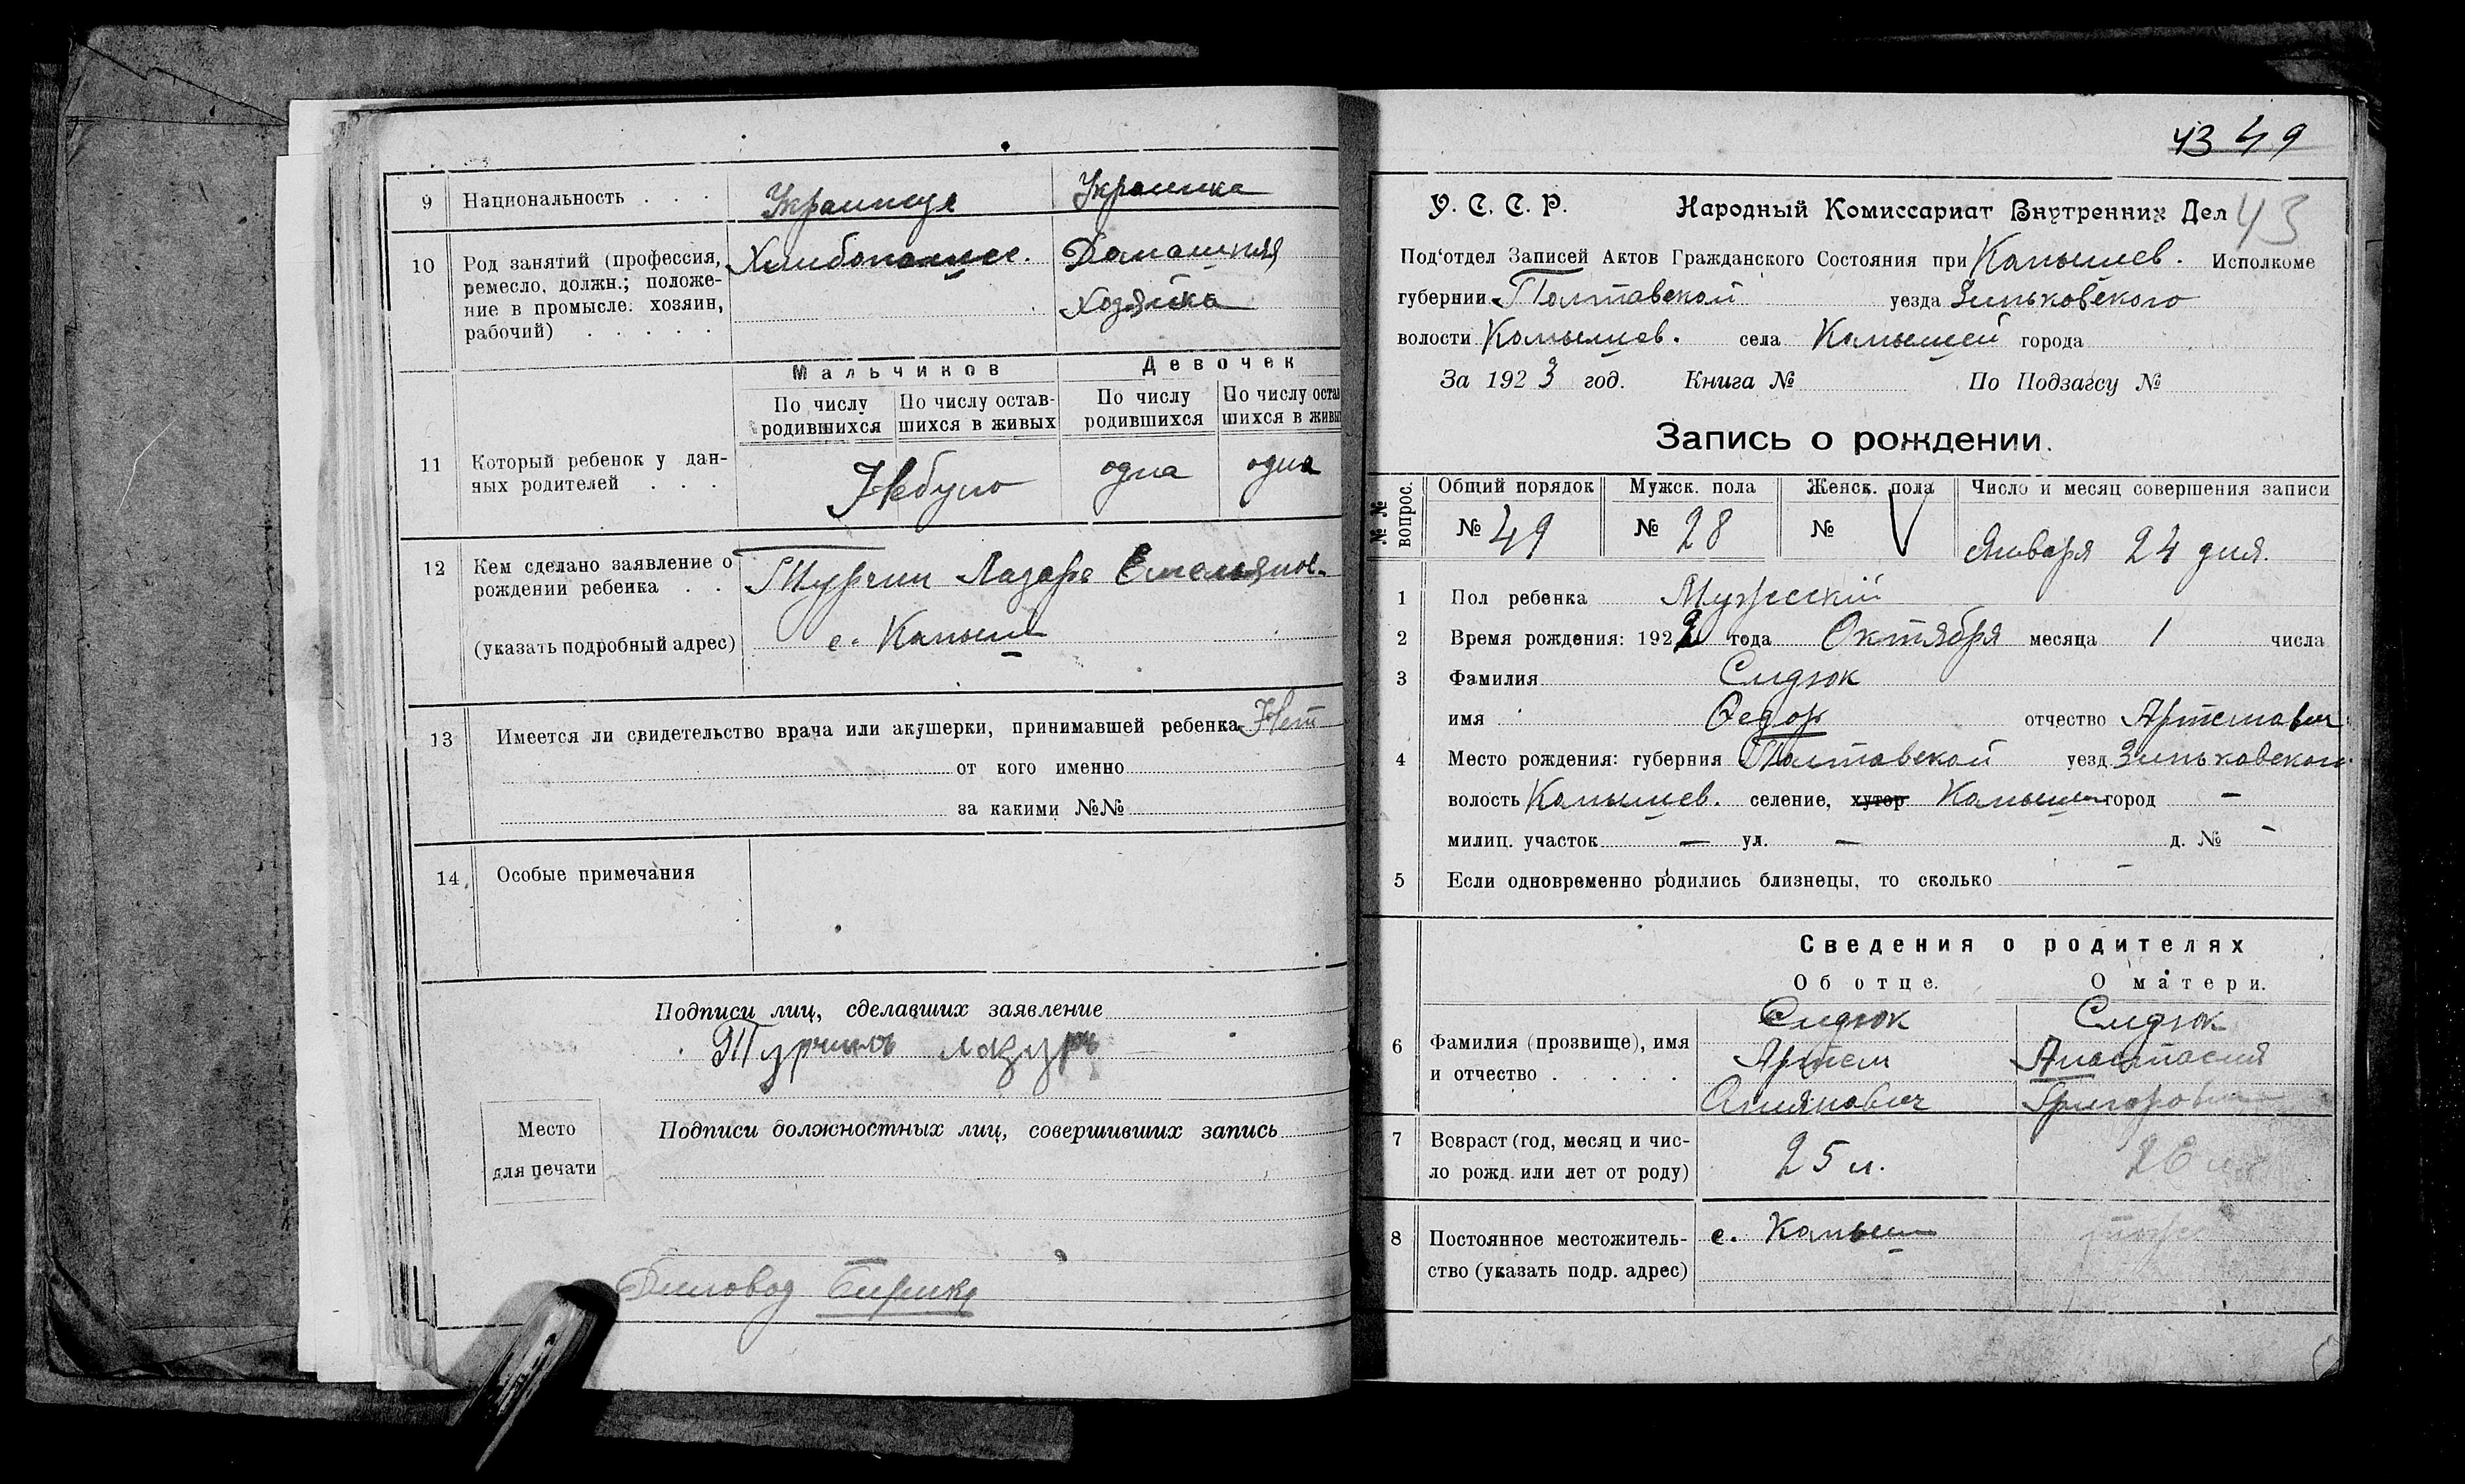 9 Национальность . . . Украинця Украинка
10 Род занятий (профессия, Хлибопашес. Домашняя
ремесло, должн.; положе-
ние в промысле: хозяин, Хозяйка
рабочий) . . . . .
Мальчиков Девочек
По числу родившихся По числу остав-шихся в живых По числу родившихся По числу остав шихся в живы
11 Который ребенок у дан-
ных родителей . . . Небуло одна одна
12 Кем сделано заявление о
рождении ребенка . . Турчин Лазарь Емельянов.
(указать подробный адрес) с. Камыши
13 Имеется ли свидетельство врача или акушерки, принимавшей ребенка Нет
от кого именно
за какими №№
14. Особые примечания
Подписи лиц, сделавших заявление
Турчинъ
Место
для печати
Подписи должностных лиц, совершивших запись
Диловод
43 49
У. С. С. Р. Народный Комиссариат Внутренних Дел 43
Под'отдел Записей Актов Гражданского Состояния при Камышев. Исполкоме
губернии Полтавской уезда Зиньковского
волости Камышев. села Камышей города
За 1923 год. Книга № По Подзагсу №
Запись о рождении.
№ № вопрос. Общий порядок Мужск. пола Женск. пола Число и месяц совершения записи
№ 49 № 28 № Января 24 дня.
1 Пол ребенка Мужеский
2 Время рождения: 1922 года Октября месяца 1 числа
3 Фамилия Сидюк
имя Федор отчество Артемович
4 Место рождения: губерния Полтавской уезд Зиньковского
волость Камышев. селение, хутор Камыши город —
милиц. участок — ул. — д. № —
5 Если одновременно родились близнецы, то сколько —
Сведения о родителях
Об отце. О матери.
Сидюк Сидюк
6 Фамилия (прозвище), имя Артем Анастасия
и отчество . . . . .
7 Возраст (год, месяц и чис- 25 л. 26 л.
ло рожд. или лет от роду)
8 Постоянное местожитель- с. Камыши тоже
ство (указать подр. адрес)